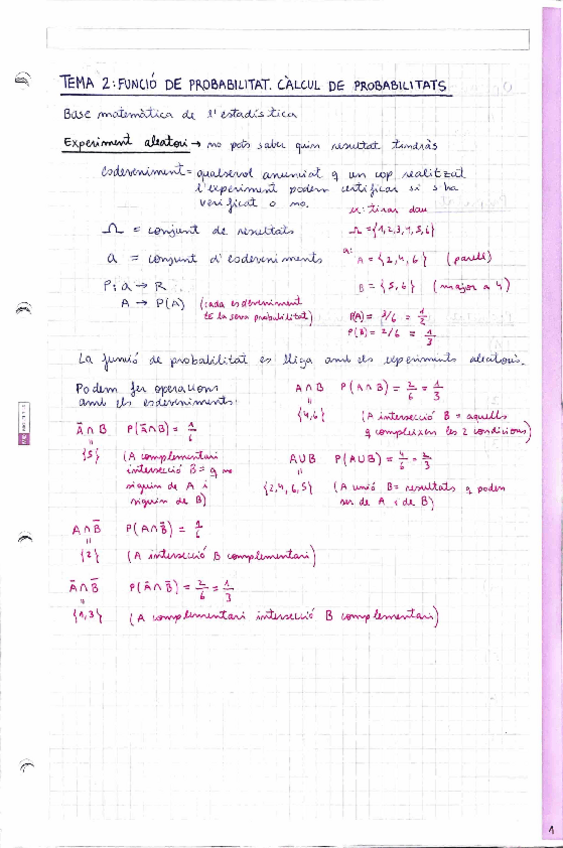 TEMA 2: FUNCIÓ DE PROBABILITAT. CÀLCUL DE PROBABILITATS
Base matemàtica de l'estadística
Experiment aleatori → no pots saber quin resultat tindràs
esdeveniment = qualsevol anunciat q un cop realitzat
l'experiment podem certificar si s'ha
verificat o no.
ex: tirar dau
Ω = conjunt de resultats
Ω = {1,2,3,4,5,6}
a = conjunt d'esdeveniments
a: A = {2,4,6} (parell)
P: a → R
B = {5,6} (major a 4)
A → P(A) (cada esdeveniment
té la seva probabilitat)
P(A) = 3/6 = 1/2
P(B) = 2/6 = 1/3
La funció de probabilitat es lliga amb els experiments aleatoris.
Podem fer operacions
amb els esdeveniments:
A∩B P(A∩B) = 2/6 = 1/3
=
{4,6} (A intersecció B = aquells
q compleixen les 2 condicions)
Ā∩B P(Ā∩B) = 1/6
=
{5} (A complementari
intersecció B = q no
siguin de A i
siguin de B)
A∪B P(A∪B) = 4/6 = 2/3
=
{2,4,6,5} (A unió B = resultats q poden
ser de A i de B)
A∩B̄ P(A∩B̄) = 1/6
=
{2} (A intersecció B complementari)
Ā∩B̄ P(Ā∩B̄) = 2/6 = 1/3
=
{1,3} (A complementari intersecció B complementari)
1